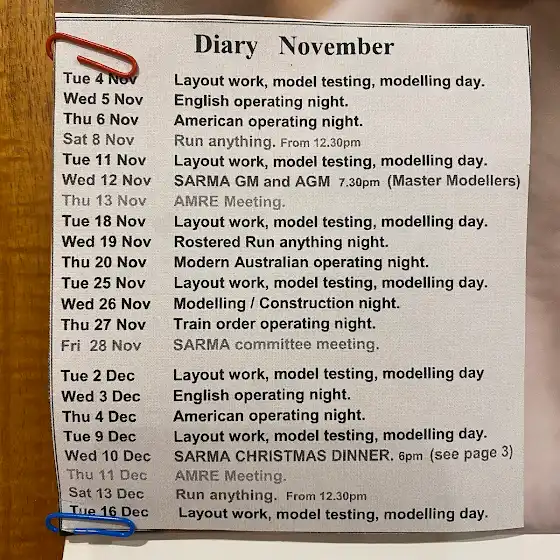 Diary November
Tue 4 Nov Layout work, model testing, modelling day.
Wed 5 Nov English operating night.
Thu 6 Nov American operating night.
Sat 8 Nov Run anything. From 12.30pm
Tue 11 Nov Layout work, model testing, modelling day.
Wed 12 Nov SARMA GM and AGM 7.30pm (Master Modellers)
Thu 13 Nov AMRE Meeting.
Tue 18 Nov Layout work, model testing, modelling day.
Wed 19 Nov Rostered Run anything night.
Thu 20 Nov Modern Australian operating night.
Tue 25 Nov Layout work, model testing, modelling day.
Wed 26 Nov Modelling / Construction night.
Thu 27 Nov Train order operating night.
Fri 28 Nov SARMA committee meeting.
Tue 2 Dec Layout work, model testing, modelling day
Wed 3 Dec English operating night.
Thu 4 Dec American operating night.
Tue 9 Dec Layout work, model testing, modelling day.
Wed 10 Dec SARMA CHRISTMAS DINNER. 6pm (see page 3)
Thu 11 Dec AMRE Meeting.
Sat 13 Dec Run anything. From 12.30pm
Tue 16 Dec Layout work, model testing, modelling day.